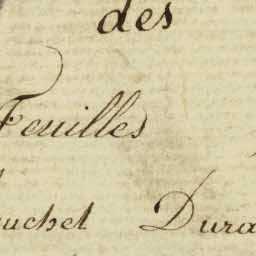 des
Feuilles
uchet Dura